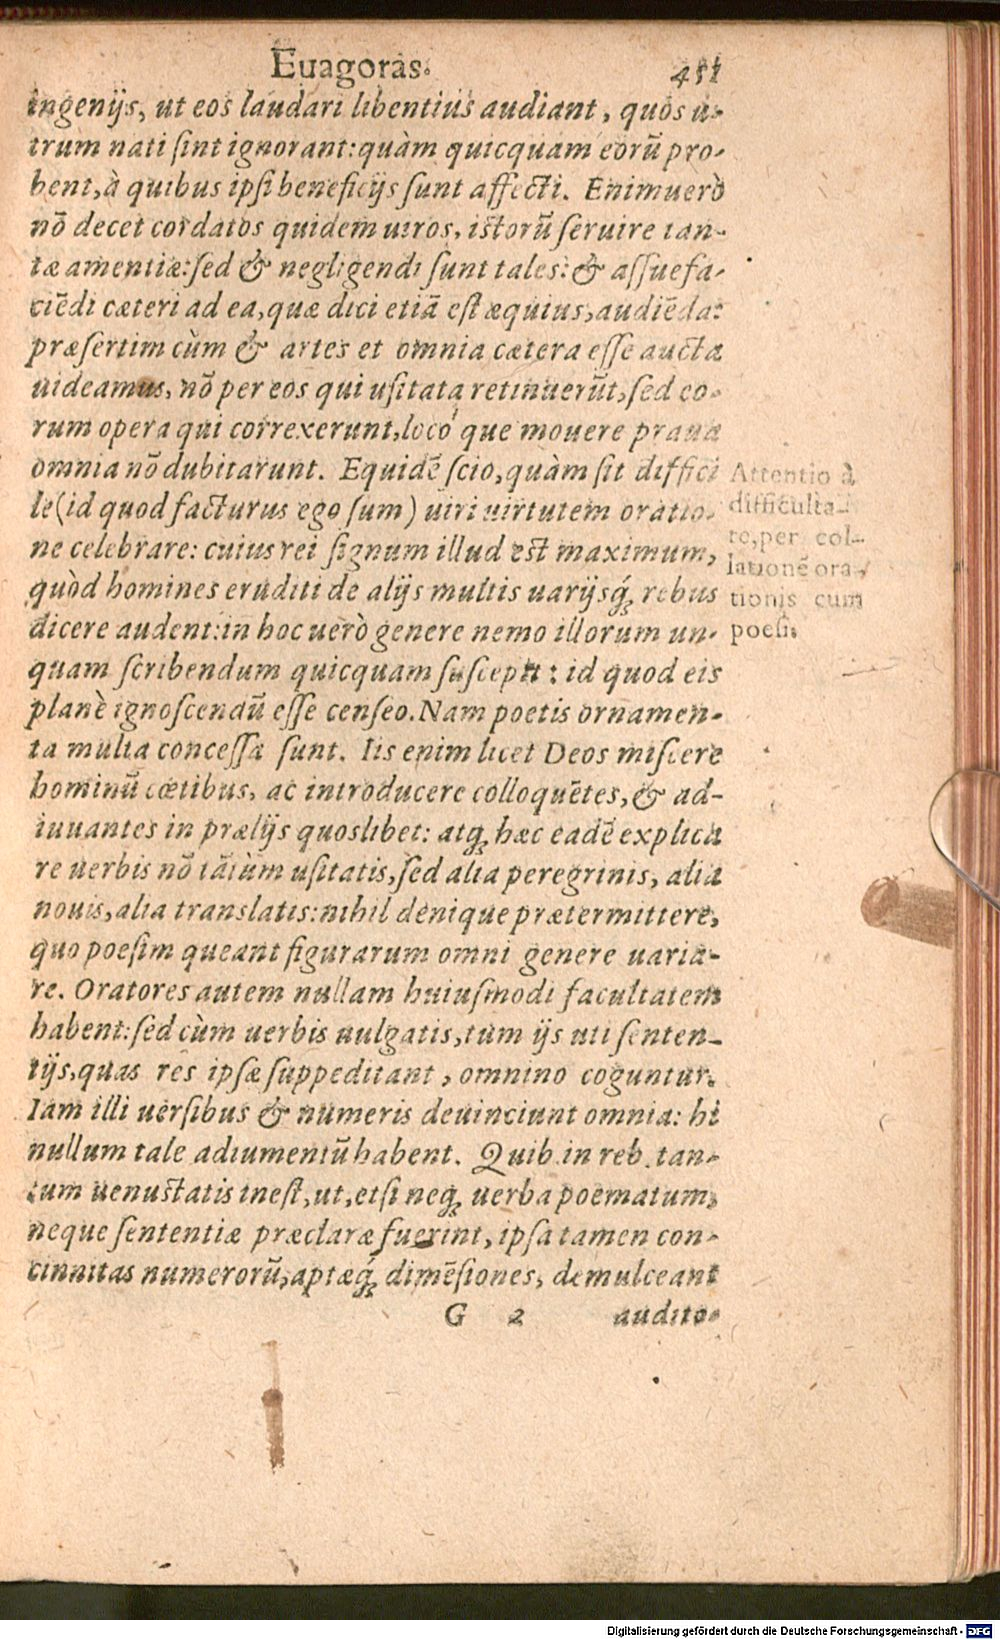 Euagoras. 451
ingenijs, ut eos laudari libentius audiant, quos u-
trum nati ſint ignorant: quàm quicquam eorū pro-
bent, à quibus ipſi beneficijs ſunt affecti. Enimuerò
nō decet cordatos quidem uiros, iſtorū ſeruire tan-
tæ amentiæ: ſed & negligendi ſunt tales: & aſſuefa-
ciēdi cæteri ad ea, quæ dici etiā eſt æquius, audiēda:
præſertim cùm & artes et omnia cætera eſſe aucta
uideamus, nō per eos qui uſitata retinuerūt, ſed eo-
rum opera qui correxerunt, loco'que mouere praua
omnia nō dubitarunt. Equidē ſcio, quàm ſit diffici
le (id quod facturus ego ſum) uiri uirtutem oratio-
ne celebrare: cuius rei ſignum illud eſt maximum,
quòd homines eruditi de alijs multis uarijsq́; rebus
dicere audent: in hoc uerò genere nemo illorum un-
quam ſcribendum quicquam ſuſcepit: id quod eis
planè ignoſcendū eſſe cenſeo. Nam poetis ornamen-
ta multa conceſſa ſunt. Iis enim licet Deos miſcere
hominū cœtibus, ac introducere colloquētes, & ad-
iuuantes in prælijs quoslibet: atq; hæc eadē explica
re uerbis nō tātùm uſitatis, ſed alia peregrinis, alia
nouis, alia translatis: nihil denique prætermittere,
quo poeſim queant figurarum omni genere uaria-
re. Oratores autem nullam huiuſmodi facultatem
habent: ſed cùm uerbis uulgatis, tum ijs uti ſenten-
tijs, quas res ipſæ ſuppeditant, omnino coguntur.
Iam illi uerſibus & numeris deuinciunt omnia: hi
nullum tale adiumentū habent. Quib. in reb. tan-
tum uenuſtatis ineſt, ut, etſi neq; uerba poematum,
neque ſententiæ præclaræ fuerint, ipſa tamen con-
cinnitas numerorū, aptæq́; dimēſiones, demulceant
G 2 audito-
Attentio à
difficulta-
te, per col-
lationē ora-
tionis cum
poeſi.
Digitalisierung gefördert durch die Deutsche Forschungsgemeinschaft - DFG